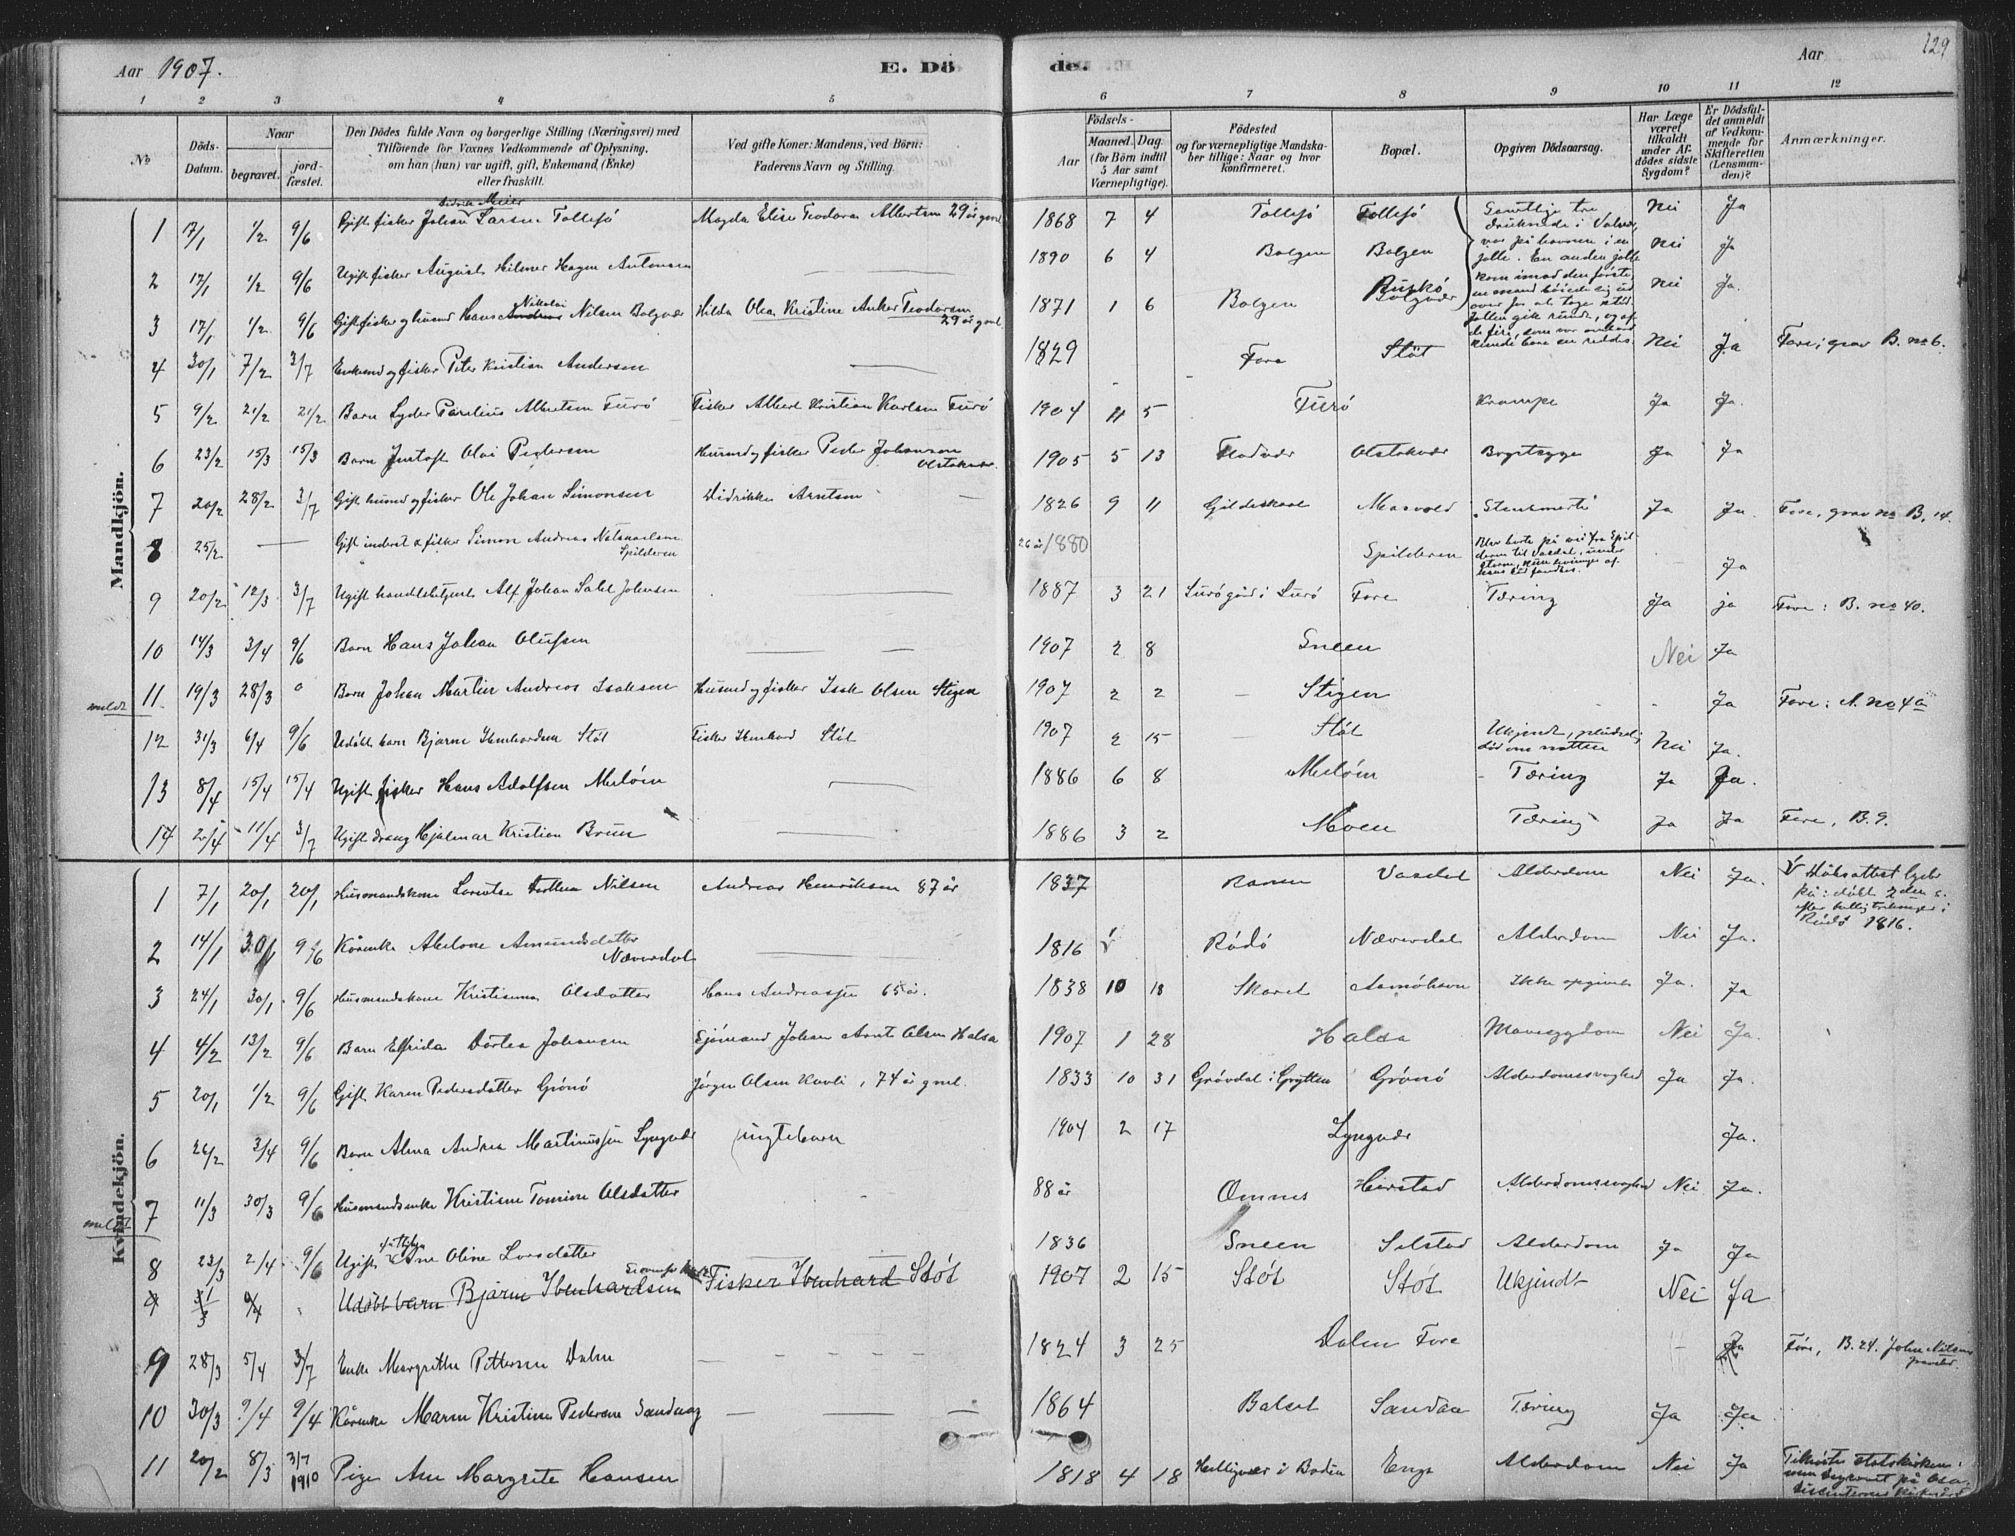 Aar 1907.
E. Dö
de.
Aar
129
1 2 3 4 5 6 7 8 9 10 11 12
No
Döds-Datum.
Naar
begravet.
jordfæstet.
Den Dödes fulde Navn og borgerlige Stilling (Næringsvei) med
Tilföiende for Voxnes Vedkommende af Oplysning,
om han (hun) var ugift, gift, Enkemand, (Enke)
eller fraskilt.
Ved gifte Koner: Mandens, ved Börn:
Faderens Navn og Stilling.
Födsels-
Aar
Maaned. Dag.
(for Börn indtil
5 Aar samt
Værnepligtige).
Födested
og for værnepligtige Mandska-
ber tillige: Naar og hvor
konfirmeret.
Bopæl.
Opgiven Dödsaarsag.
Har Læge
været
tilkaldt
under Af-
dödes sidste
Sygdom?
Er Dödsfal-
det anmeldt
af Vedkom-
mende for
Skifteretten
(Lensman-
den)?
Anmærkninger.
Mandkjön.
1 17/1 1/2 9/6 Gift fisker Johan Meier Larsen Tollesjö Magda Elise Teodora Albertsen 29 år gml 1868 7 4 Tollesjö Tollesjö Samtlige tre druknede i Valvær, Nei Ja
2 17/1 1/2 9/6 Ugift fisker August Hilmer Hagen Antonsen 1890 6 4 Bolgen Bolgen var på havnen i en jolle. En anden jolle Nei Ja
3 17/1 1/2 9/6 Gift fisker og husmd Hans Nikolai Nilsen Bolgvær Hilda Olea Kristine Anker Teodorsen 29 år gml 1871 1 6 Bolgen Buskö kom imod den förste Nei Ja.
4 30/1 7/2 3/7 Enkemd og fisker Peter Kristian Andersen 1829 Fore Stöt Nei Ja Fore; grav B. no 6.
5 9/2 21/2 21/2 Barn Lyder Parelius Albertsen Furö Fisker Albert Kristian Karlsen Furö 1904 11 5 Furö Krampe Ja Ja.
6 23/2 15/3 15/3 Barn Justoft Olai Pedersen Husmd og fisker Peder Johansen 1905 5 13 Flodvær Brystsyge Ja Ja
7 20/2 28/2 3/7 Gift husmd og fisker Ole Johan Simonsen Didrikke Arntsen 1826 9 11 Gildeskaal Masvold Stensmerte Ja Ja. Fore, grav no B. 14.
8 25/2 Gift inderst & fisker Simon Andreas Natanaelsen Spilderen 26 år/1880 Spilderen Blev borte på vei fra Spilderen til Vasdal, under storm, Ja
9 20/2 12/3 3/7 Ugift handelsbetjent Alf Johan Johnsen 1887 3 21 Lurögård i Lurö Fore Tæring Ja ja Fore: B. no 40.
10 14/3 3/4 9/6 Barn Hans Johan Olufsen 1907 2 8 Sneen Nei Ja
meldt
11 19/3 28/3 0 Barn Johan Martin Andreas Isaksen Husmd og fisker Isak Olsen Stigen 1907 2 2 Stigen Ja Fore: A. no 4a
12 31/3 6/4 9/6 Udöbt barn Bjarne Ibenhardsen Stöt Fisker Ibenhard Stöt 1907 2 15 Stöt Ukjendt, pludselig död om natten Nei Ja.
13 8/4 15/4 15/4 Ugift fisker Hans Adolfsen Melöen 1886 6 8 Melöen Tæring Ja Ja.
14 2/4 11/4 3/7 Ugift dreng Hjalmar Kristian Bruun 1886 3 2 Moen Tæring Ja Ja Fore, B. 9.
Kvindekjön.
1 7/1 20/1 20/1 Husmandskone Lorentse Nilsen Andreas Henriksen 87 år 1837 Ranen Vasdal Alderdom Nei Ja. Rödö 1816.
2 14/1 30/1 9/6 Kårenke Abelone Amundsdatter Næverdal 1816 Rödö Næverdal Alderdom Nei Ja.
3 24/1 30/1 9/6 Husmandskone Kristianna Olsdatter Hans Andreassen 65 år. 1838 10 18 Skaret Ikke opgivet Ja. Ja
4 4/2 13/2 9/6 Barn Elfrida Dortea Johansen Sjömand Johan Arnt Olsen Halsa 1907 1 28 Halsa Mavesygdom Nei Ja.
5 20/1 1/2 9/6 Gift Karen Pedersdatter Grönö Jörgen Olsen Kavli, 74 år gml. 1833 10 31 Grövdal i Grytten Grönö Alderdomssvaghed Ja Ja.
6 26/2 3/4 9/6 Barn Alma Andrea Martinussen Lyngvær (uegtebarn 1904 2 17 Lyngvær Ja.
meldt
7 11/3 30/3 9/6 Husmandsenke Kristine Tomine Olsdatter 88 år Ømnes Heistad Alderdomssvaghed Nei Ja.
8 23/3 2/4 9/6 Ugift fattiglem Ane Oline Larsdatter 1836 Sneen Selstad Alderdom Ja Ja
9 31/3 6/4 Udöbt barn Bjarne Ibenhardsen Fisker Ibenhard Stöt 1907 2 15 Stöt Stöt Ukjendt Nei Ja
9 28/3 5/4 3/7 Enke Margrethe Pettersen Dalen 1824 3 25 Dalen Fore Ja Fore, B. 24. John Nilsens gravsted.
10 30/3 9/4 9/4 Kårenke Maren Kristine Pedersen Sandaag 1864 Balset Sandaa Tæring Ja Ja
11 20/2 8/3 3/7 1910 Pige Ane Margrete Hansen 1818 4 18 Helligvær i Bodin Enge Alderdom Nei Ja Tilhörte statskirken,